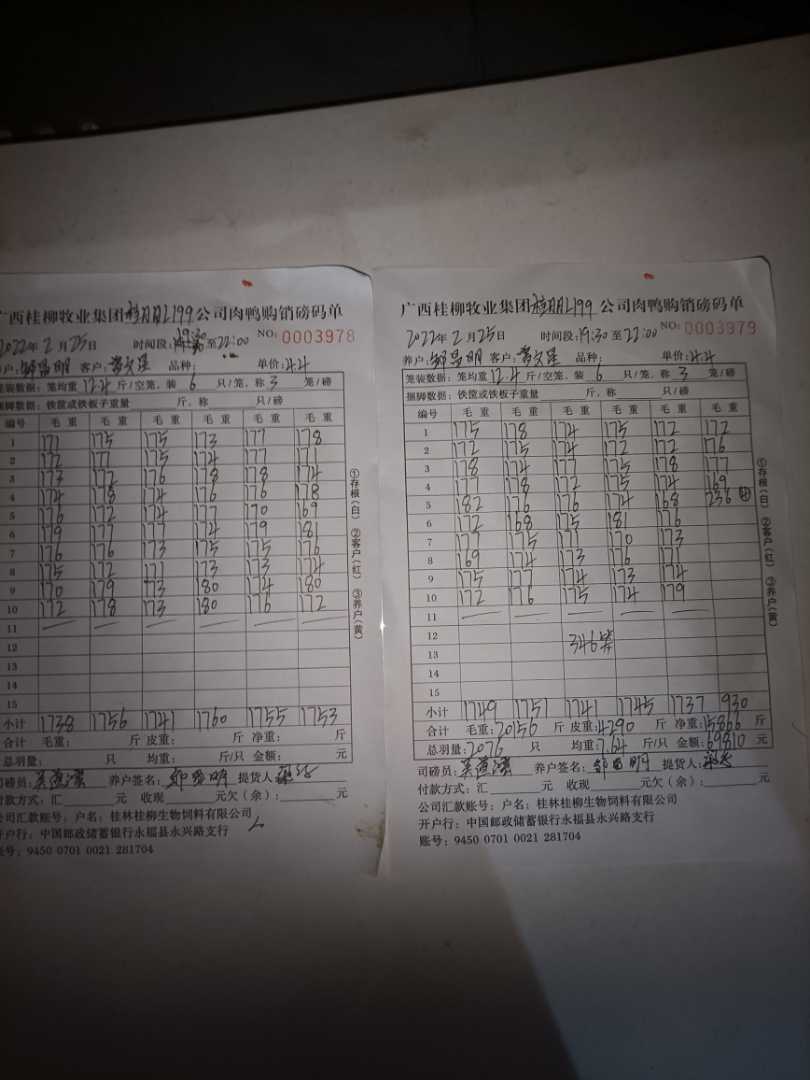 广西桂柳牧业集团 L199公司肉鸭购销磅码单
2022年2月25日 时间段:19:30至22:00 NO:0003978
养户: 明 客户: 品种: 单价:4.4
笼装数据:笼均重12.4斤/空笼,装6只/笼,称3笼/磅
捆脚数据:铁筐或铁板子重量 斤,称 只/磅
编号 毛重 毛重 毛重 毛重 毛重 毛重
1 171 175 175 173 177 178
2 172 177 175 174 177 171
3 173 172 176 178 178 174
4 174 178 174 176 176 178
5 176 172 174 177 170 169
6 179 177 177 174 179 181
7 176 176 173 175 175 176
8 175 172 171 173 173 174
9 170 179 173 180 174 180
10 172 178 173 180 176 172
11
12
13
14
15
小计 1738 1756 1741 1760 1755 1753
合计 毛重: 斤 皮重: 斤 净重: 斤
总羽量: 只 均重: 斤/只 金额: 元
司磅员: 养户签名: 明 提货人:
付款方式:汇 元 收现 元欠(余): 元
公司汇款账号:户名:桂林桂柳生物饲料有限公司
开户行:中国邮政储蓄银行永福县永兴路支行
账号:9450 0701 0021 281704
①存根(白) ②客户(红) ③养户(黄)
广西桂柳牧业集团 L199公司肉鸭购销磅码单
2022年2月25日 时间段:19:30至22:00 NO:0003979
养户: 明 客户: 品种: 单价:4.4
笼装数据:笼均重12.4斤/空笼,装6只/笼,称3笼/磅
捆脚数据:铁筐或铁板子重量 斤,称 只/磅
编号 毛重 毛重 毛重 毛重 毛重 毛重
1 175 178 174 175 172 172
2 172 175 174 172 172 176
3 178 174 177 175 178 177
4 177 178 172 175 174 169
5 182 176 176 174 168 236
6 172 168 175 181 176
7 177 175 171 170 173
8 169 174 173 176 171
9 175 177 174 173 174
10 172 176 175 174 179
11
12
13 346
14
15
小计 1749 1751 1741 1745 1737 930
合计 毛重:20156斤 皮重:4290斤 净重:15866斤
总羽量:2076只 均重:7.64斤/只 金额:69810元
司磅员: 养户签名: 明 提货人:
付款方式:汇 元 收现 元欠(余): 元
公司汇款账号:户名:桂林桂柳生物饲料有限公司
开户行:中国邮政储蓄银行永福县永兴路支行
账号:9450 0701 0021 281704
①存根(白) ②客户(红) ③养户(黄)